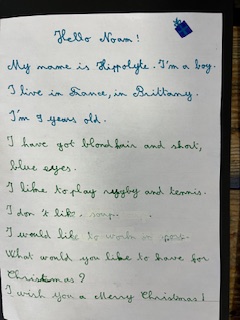 Hello Noam!
My name is Hippolyte. I'm a boy.
I live in France, in Brittany.
I'm 9 years old.
I have got blond hair and short,
blue eyes.
I like to play rugby and tennis.
I don't like soup.
I would like to work in sport.
What would you like to have for
Christmas?
I wish you a Merry Christmas!